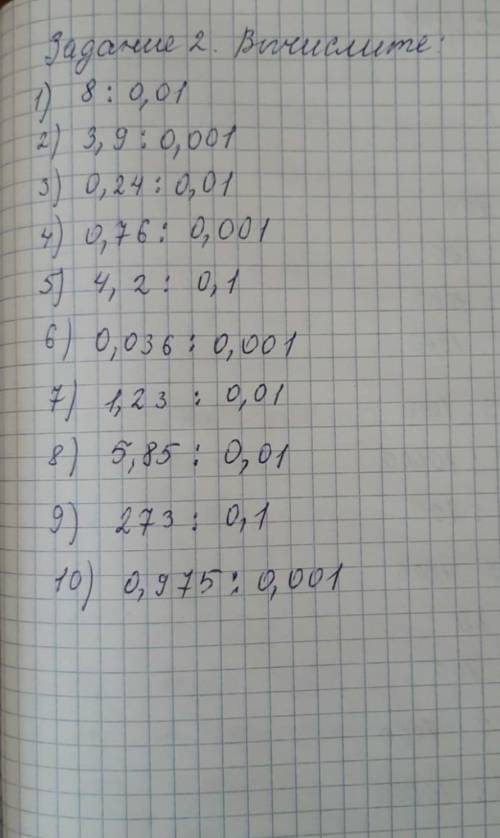 Задание 2. Вычислите:
1) 8 : 0,01
2) 3,9 : 0,001
3) 0,24 : 0,01
4) 0,76 : 0,001
5) 4,2 : 0,1
6) 0,036 : 0,001
7) 1,23 : 0,01
8) 5,85 : 0,01
9) 273 : 0,1
10) 0,975 : 0,001